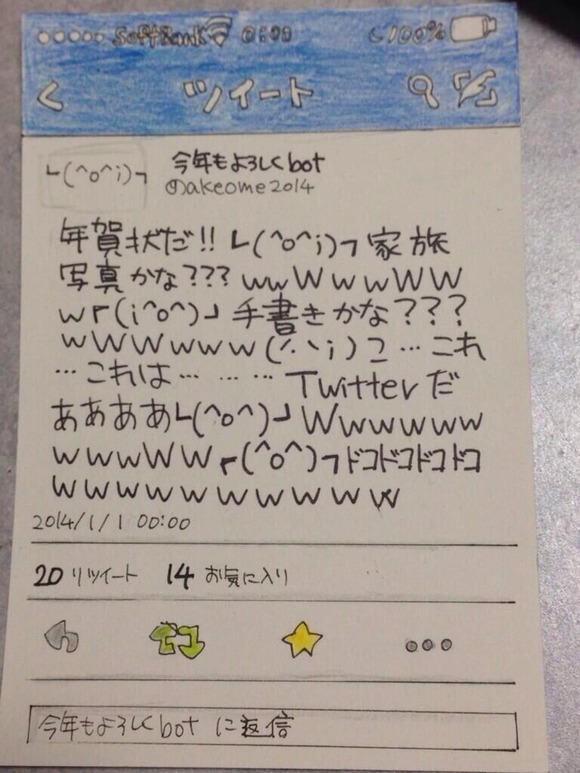 SoftBank 0:00 100%
ツイート
└(^o^i)┐ 今年もよろしくbot
@akeome2014
年賀状だ!! └(^o^i)┐家族
写真かな??? wwWwwWW
w┌(i^o^)┘手書きかな???
wWWwwww(´･ヽi)⊃…これ
…これは… … … Twitterだ
ああああ└(^o^)┘Wwwwww
wwwWW┌(^o^)┐ドコドコドコドコ
wwwwwwwwwww
2014/1/1 00:00
20 リツイート 14 お気に入り
今年もよろしくbot に返信